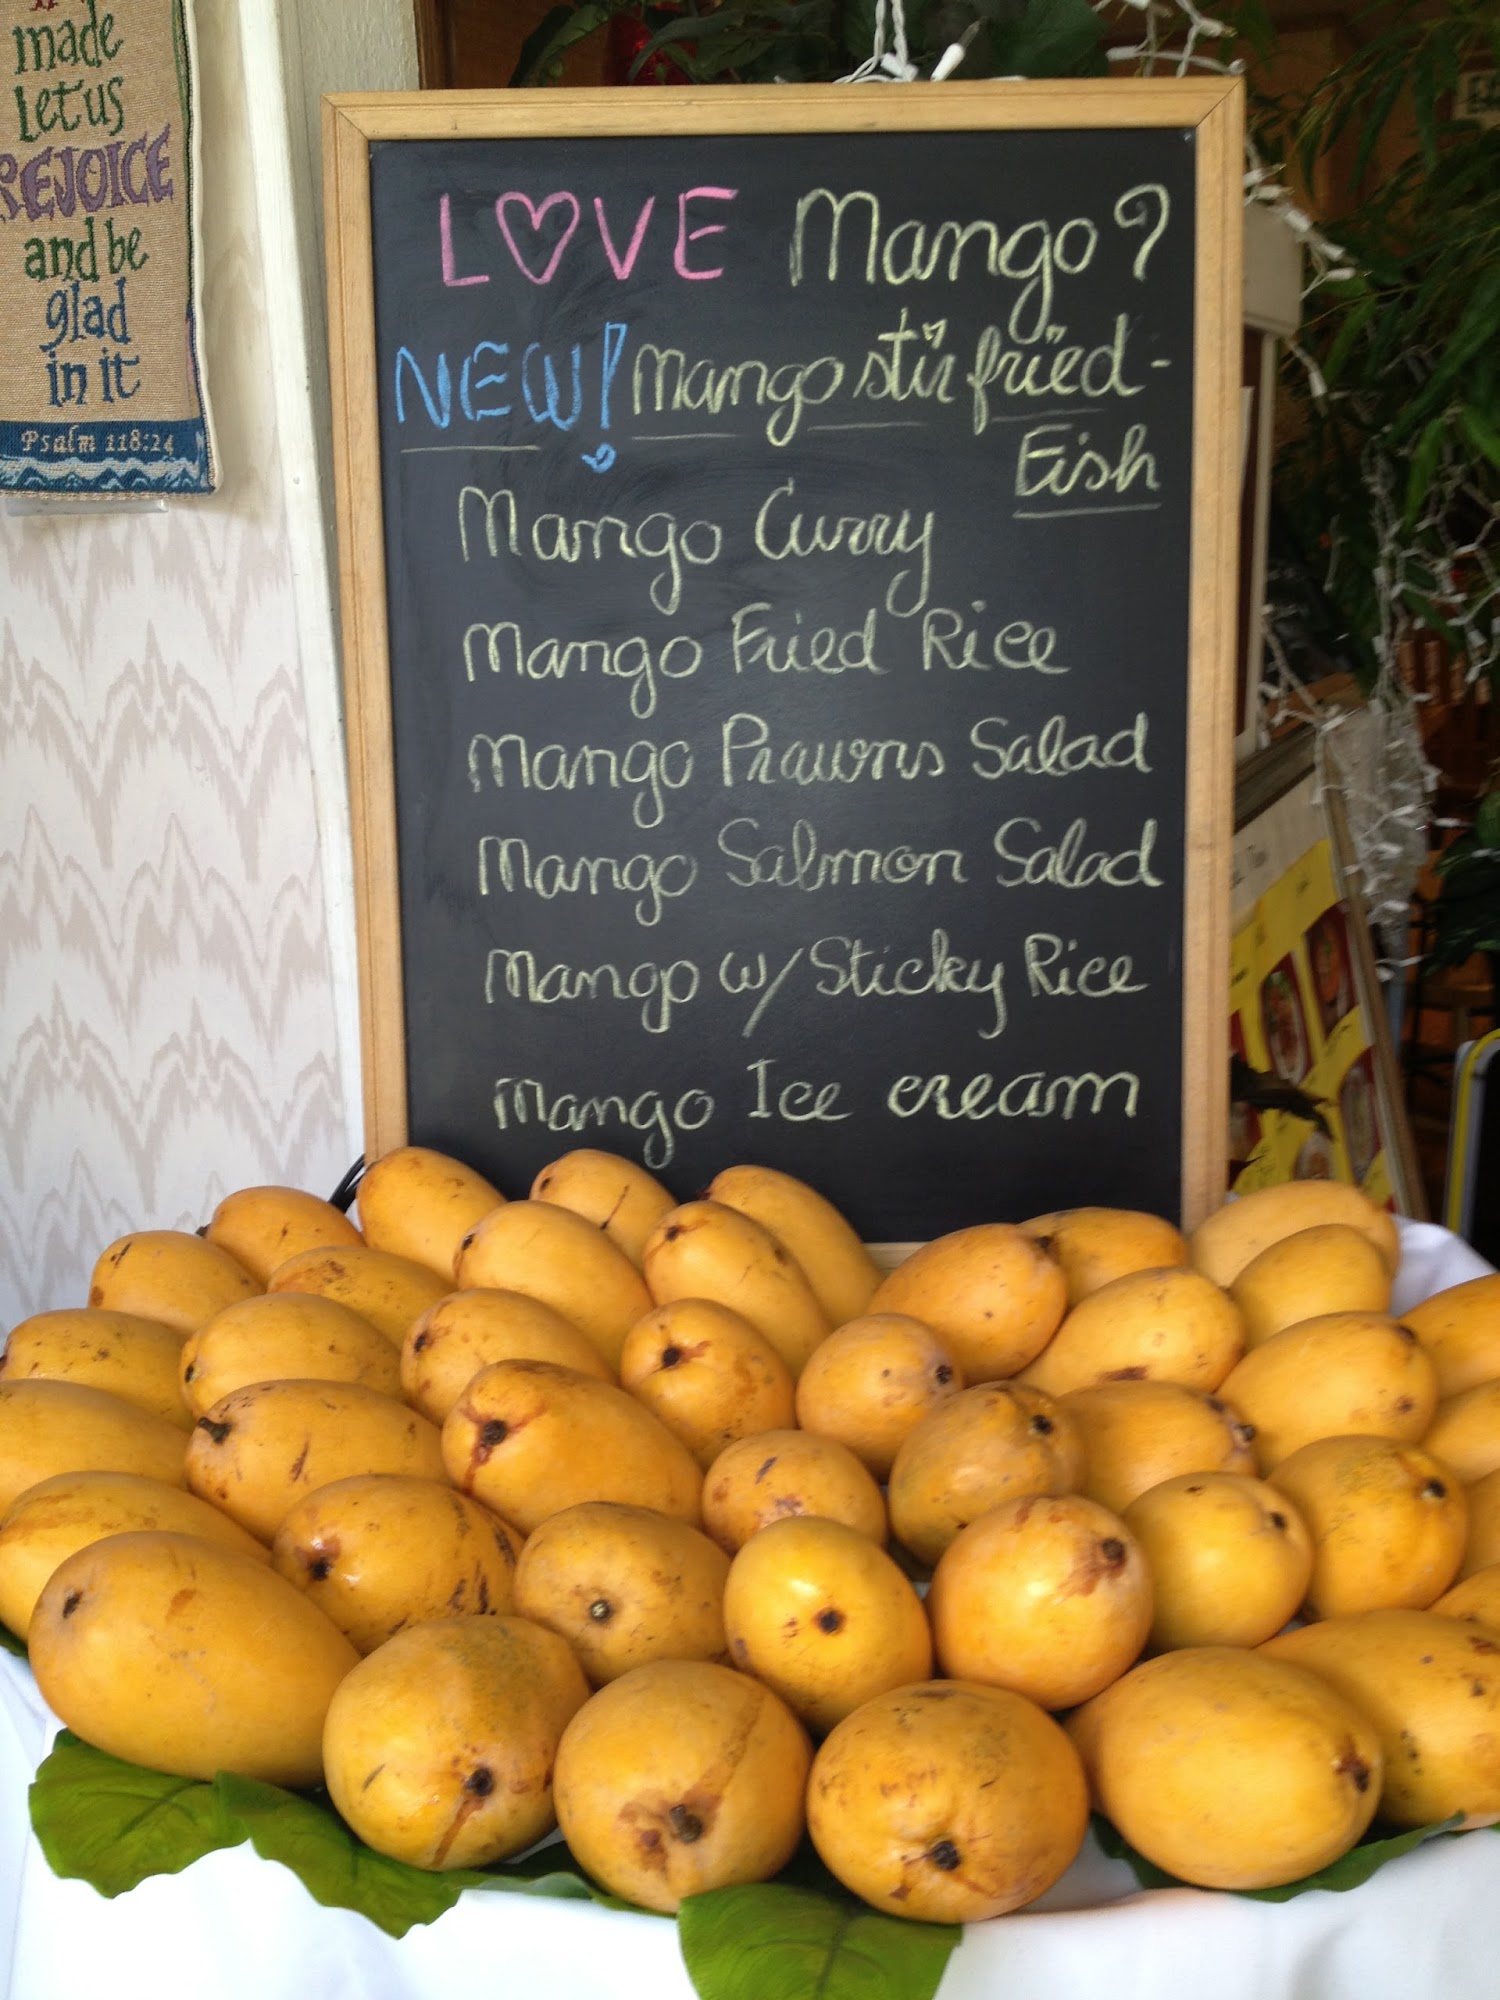 made
Let us
REJOICE
and be
glad
in it
Psalm 118:24
LOVE Mango?
NEW! Mango stir fried-
Fish
Mango Curry
Mango Fried Rice
Mango Prawns Salad
Mango Salmon Salad
Mango w/ Sticky Rice
Mango Ice cream